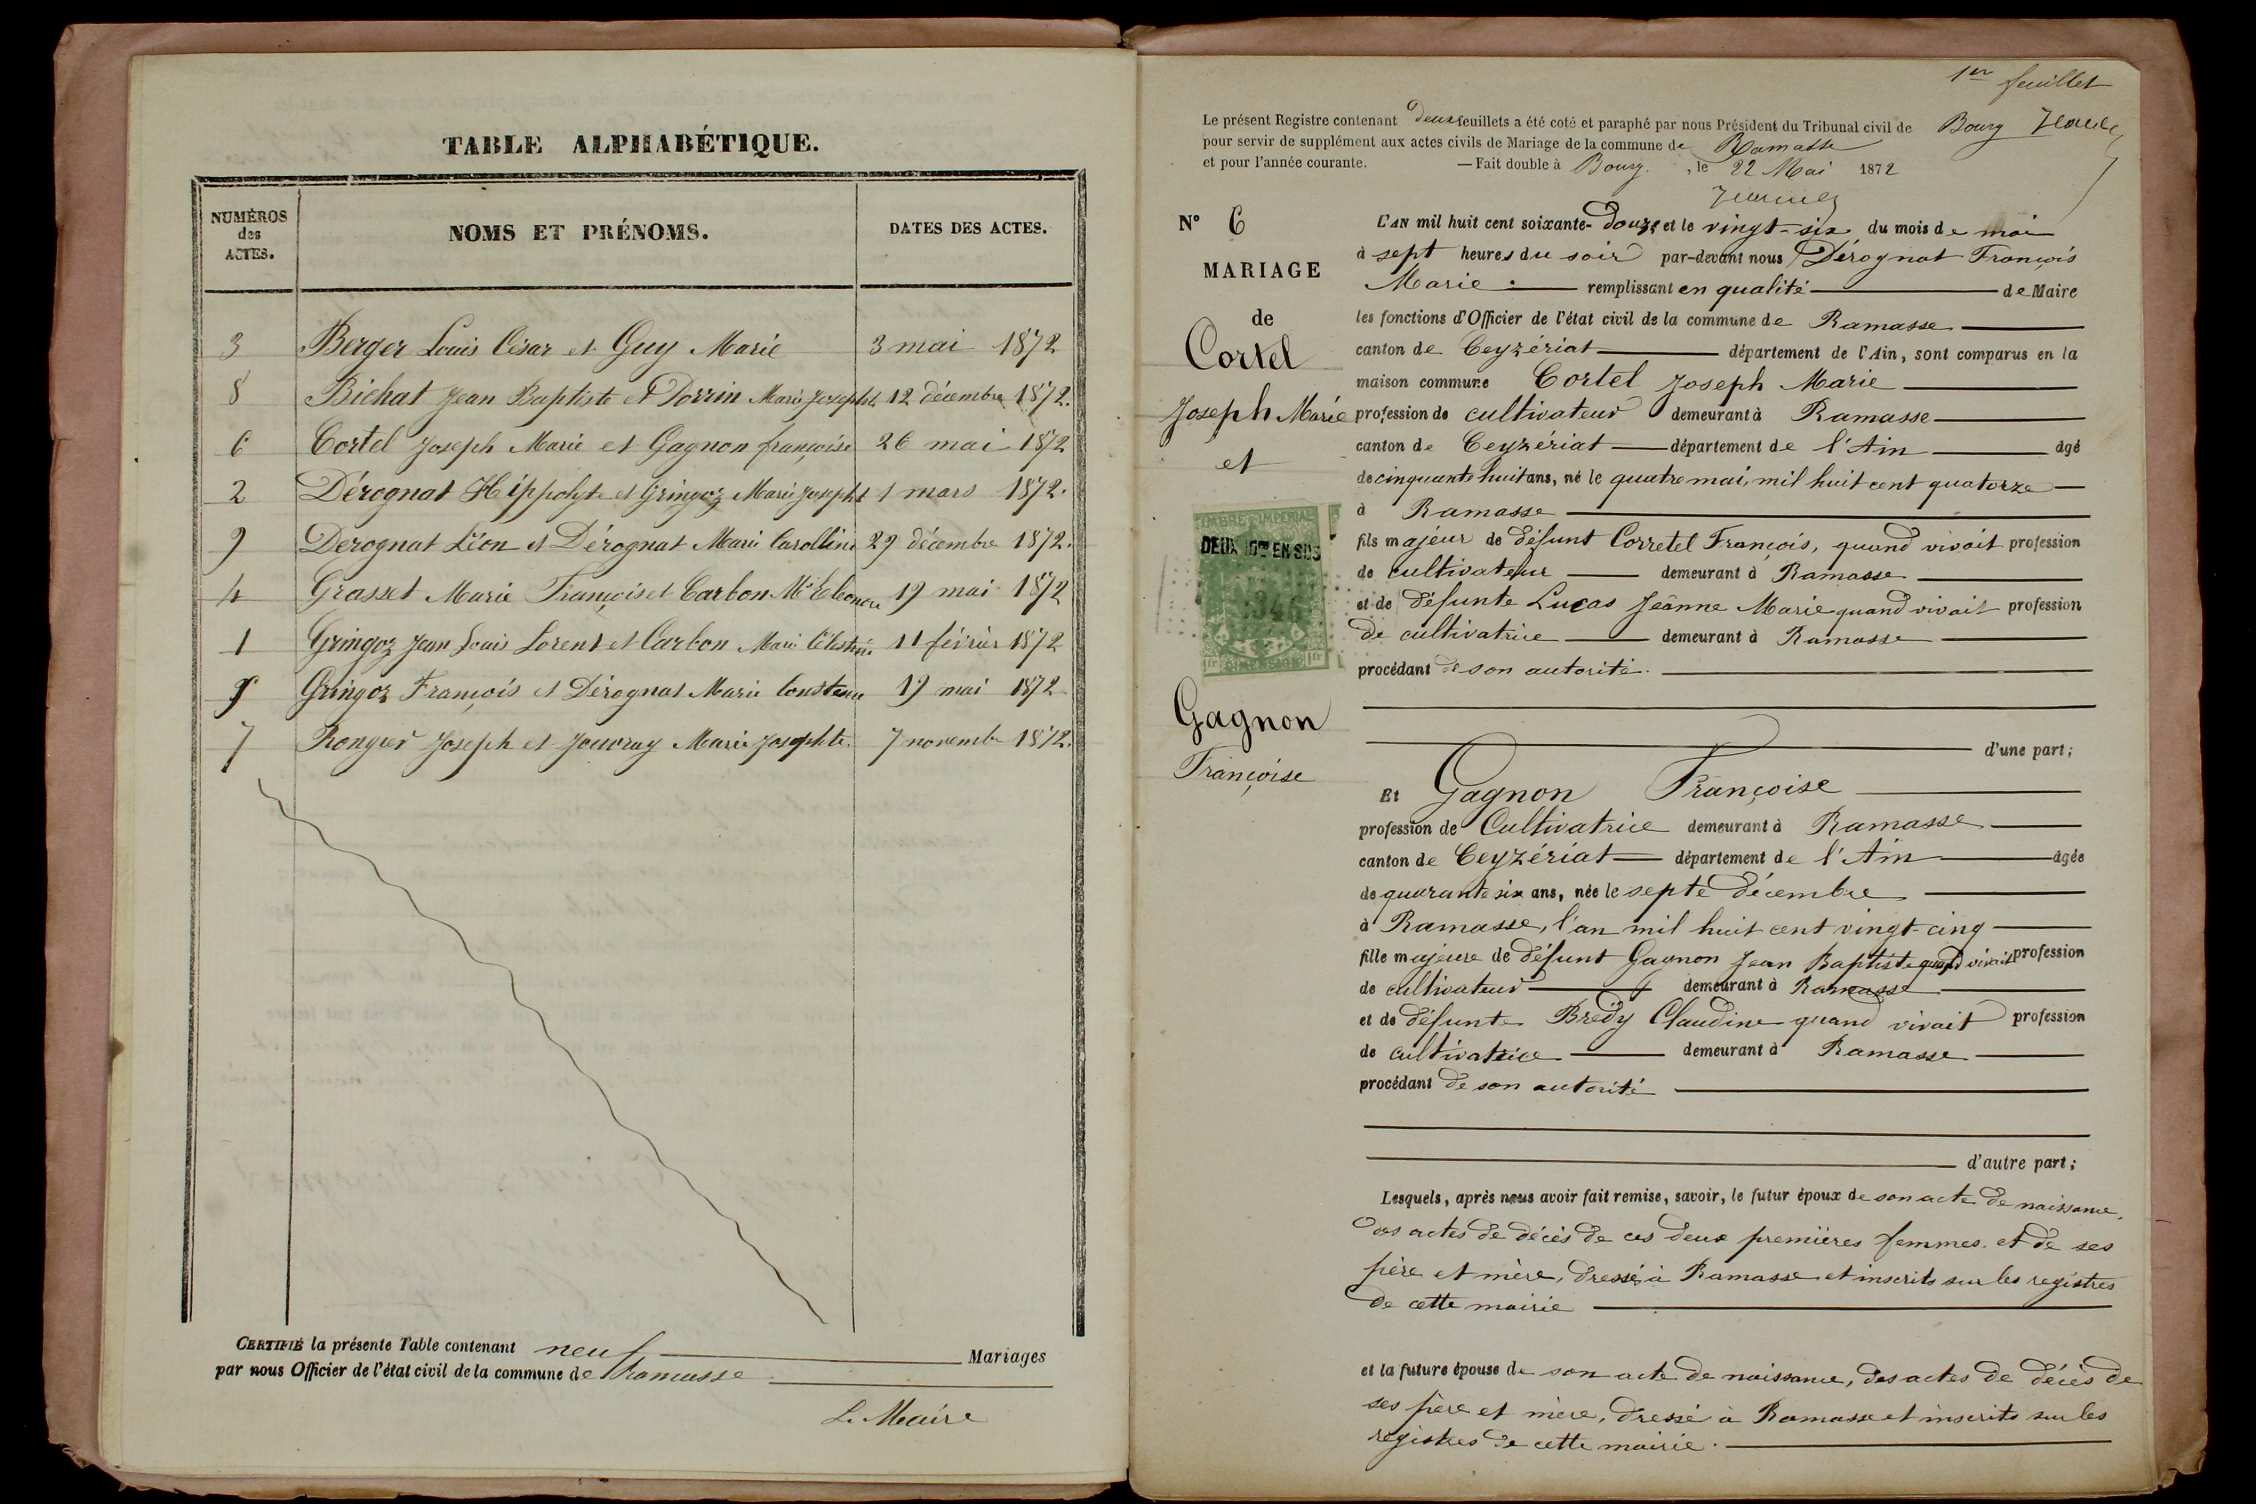 TABLE ALPHABÉTIQUE.
NUMÉROS des ACTES.
NOMS ET PRÉNOMS.
DATES DES ACTES.
3 Berger Louis César et Guy Marie 3 mai 1872
8 Bichat Jean Baptiste et Dorrin Marie Josephte 12 décembre 1872.
6 Cortel Joseph Marie et Gagnon françoise 26 mai 1872
2 Dérognat Hippolyte et Gringoz Marie Josephte 1 mars 1872.
9 Derognat Léon et Dérognat Marie Carolline 29 décembre 1872.
4 Grasset Marie François et Carbon Mie Eleonore 19 mai 1872
1 Gringoz Jean Louis Lorent et Carbon Marie Célestine. 11 février 1872
5 Gringoz François et Dérognat Marie 19 mai 1872
7 Rongier Joseph et Marie Josephte. 7 novembre 1872.
CERTIFIÉ la présente Table contenant neuf Mariages
par nous Officier de l'état civil de la commune de Ramasse
Le Maire
1er feuillet
Le présent Registre contenant deux feuillets a été coté et paraphé par nous Président du Tribunal civil de Bourg
pour servir de supplément aux actes civils de Mariage de la commune de Ramasse
et pour l'année courante. — Fait double à Bourg. , le 22 Mai 1872
N° 6
MARIAGE
de
Cortel
Joseph Marie
et
TIMBRE IMPÉRIAL
DEUX 10mes EN SUS
1fr DIMENSION 1fr
Gagnon
Françoise
L'AN mil huit cent soixante-douze et le vingt-six du mois de mai
à sept heures du soir par-devant nous Dérognat François
Marie remplissant en qualité de Maire
les fonctions d'Officier de l'état civil de la commune de Ramasse
canton de Ceyzériat département de l'Ain, sont comparus en la
maison commune Cortel Joseph Marie
profession de cultivateur demeurant à Ramasse
canton de Ceyzériat département de l'Ain âgé
de cinquante huit ans, né le quatre mai, mil huit cent quatorze
à Ramasse
fils majeur de défunt Corretel François, quand vivait profession
de cultivateur demeurant à Ramasse
et de défunte Lucas Jeanne Marie quand vivait profession
de cultivatrice demeurant à Ramasse
procédant de son autorité.
d'une part;
Et Gagnon Françoise
profession de Cultivatrice demeurant à Ramasse
canton de Ceyzériat département de l'Ain âgée
de quarante six ans, née le septe décembre
à Ramasse, l'an mil huit cent vingt-cinq
fille majeure de défunt Gagnon Jean Baptiste quand vivait profession
de cultivateur demeurant à Ramasse
et de défunte Brédy Claudine quand vivait profession
de cultivatrice demeurant à Ramasse
procédant de son autorité
d'autre part;
Lesquels, après nous avoir fait remise, savoir, le futur époux de son acte de naissance,
des actes de décès de ces deux premières femmes. et de ses
père et mère, dressé à Ramasse et inscrits sur les registres
de cette mairie
et la future épouse de son acte de naissance, des actes de décès de
ses père et mère, dressé à Ramasse et inscrits sur les
registres de cette mairie.